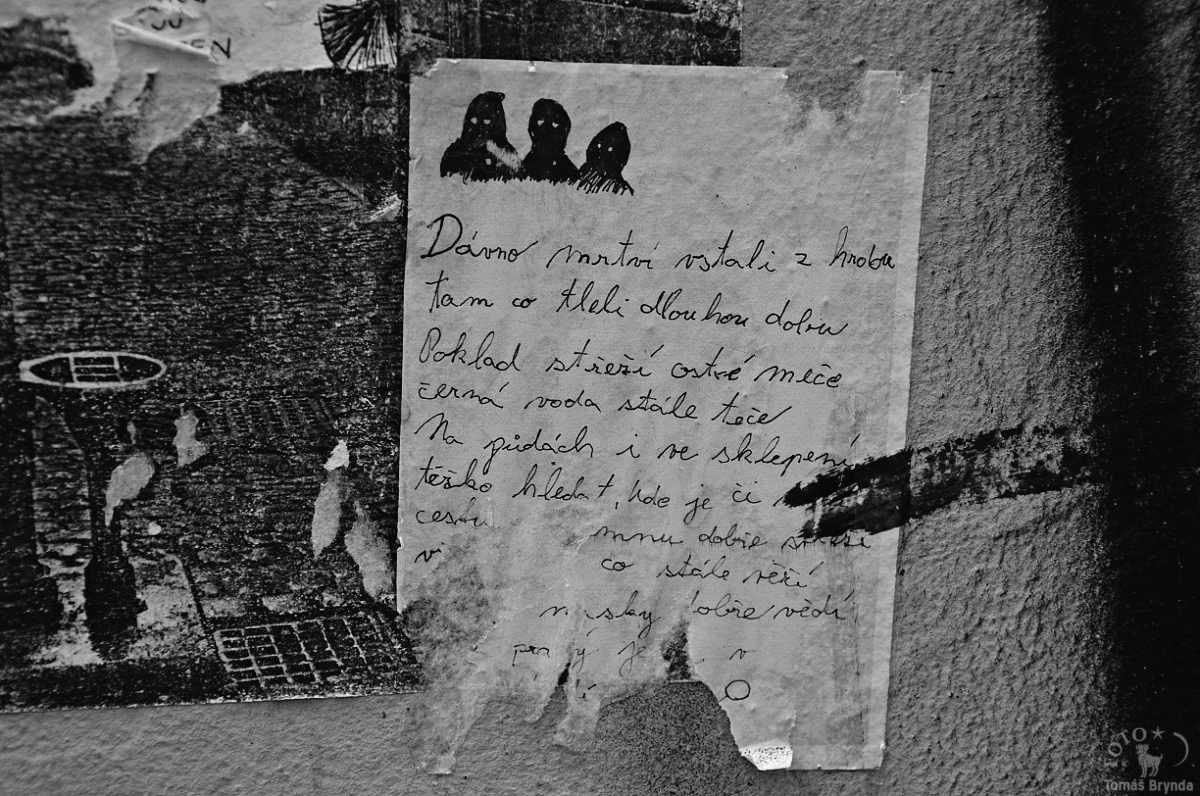 Dávno mrtví vstali z hrobu
tam co tleli dlouhou dobu
Poklad střeží ostré meče
černá voda stále teče
Na půdách i ve sklepení
těžko hledat, kde je či
cestu mnu dobře
co stále věží
dobře vědí
je v
FOTO
Tomáš Brynda